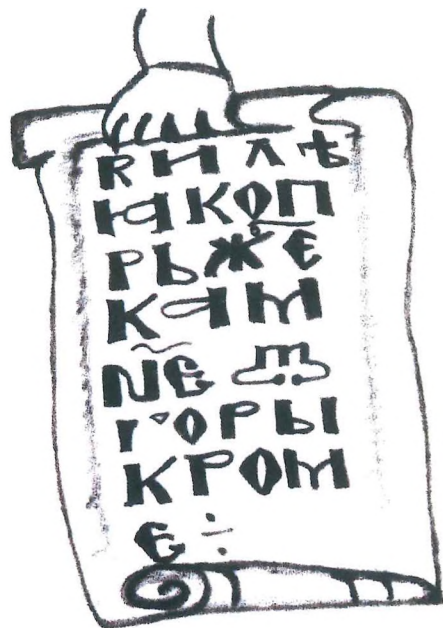 ВИЛѢ
ꙖКОП
РЬЖЕ
КАМ
NЕ Ѿ
ГОРЫ
КРОМ
Е ÷